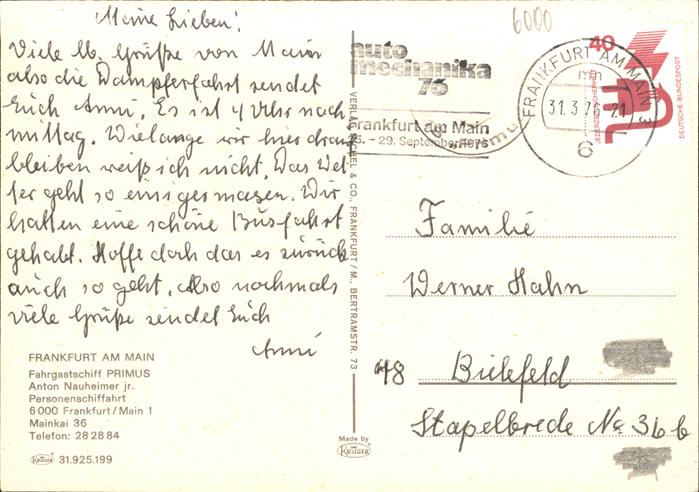 Meine Lieben!
Viele lb. Grüße von Main
also die Dampferfahrt sendet
Euch Anni. Es ist 4 Uhr nach
mittag. Wielange wir hier drau
bleiben weiß ich nicht. Das Wet
ter geht so einigesmasen. Wir
hatten eine schöne Busfahrt
gehabt. Hoffe doch das es zurück
auch so geht. Also nochmals
viele Grüße sendet Euch
Anni
FRANKFURT AM MAIN
Fahrgastschiff PRIMUS
Anton Nauheimer jr.
Personenschiffahrt
6000 Frankfurt/Main 1
Mainkai 36
Telefon: 28 28 84
KRÜGER 31.925.199
FRANKFURT/M., BERTRAMSTR. 73
Made by
KRÜGER
6000
auto
mechanika
76
Frankfurt am Main
29. September 1976
FRANKFURT AM MAIN 3
mn
31.3.76-21
6
40
JEDERZEIT SICHERHEIT
DEUTSCHE BUNDESPOST
Familie
Werner Hahn
48 Bielefeld
Stapelbrede No 36 b